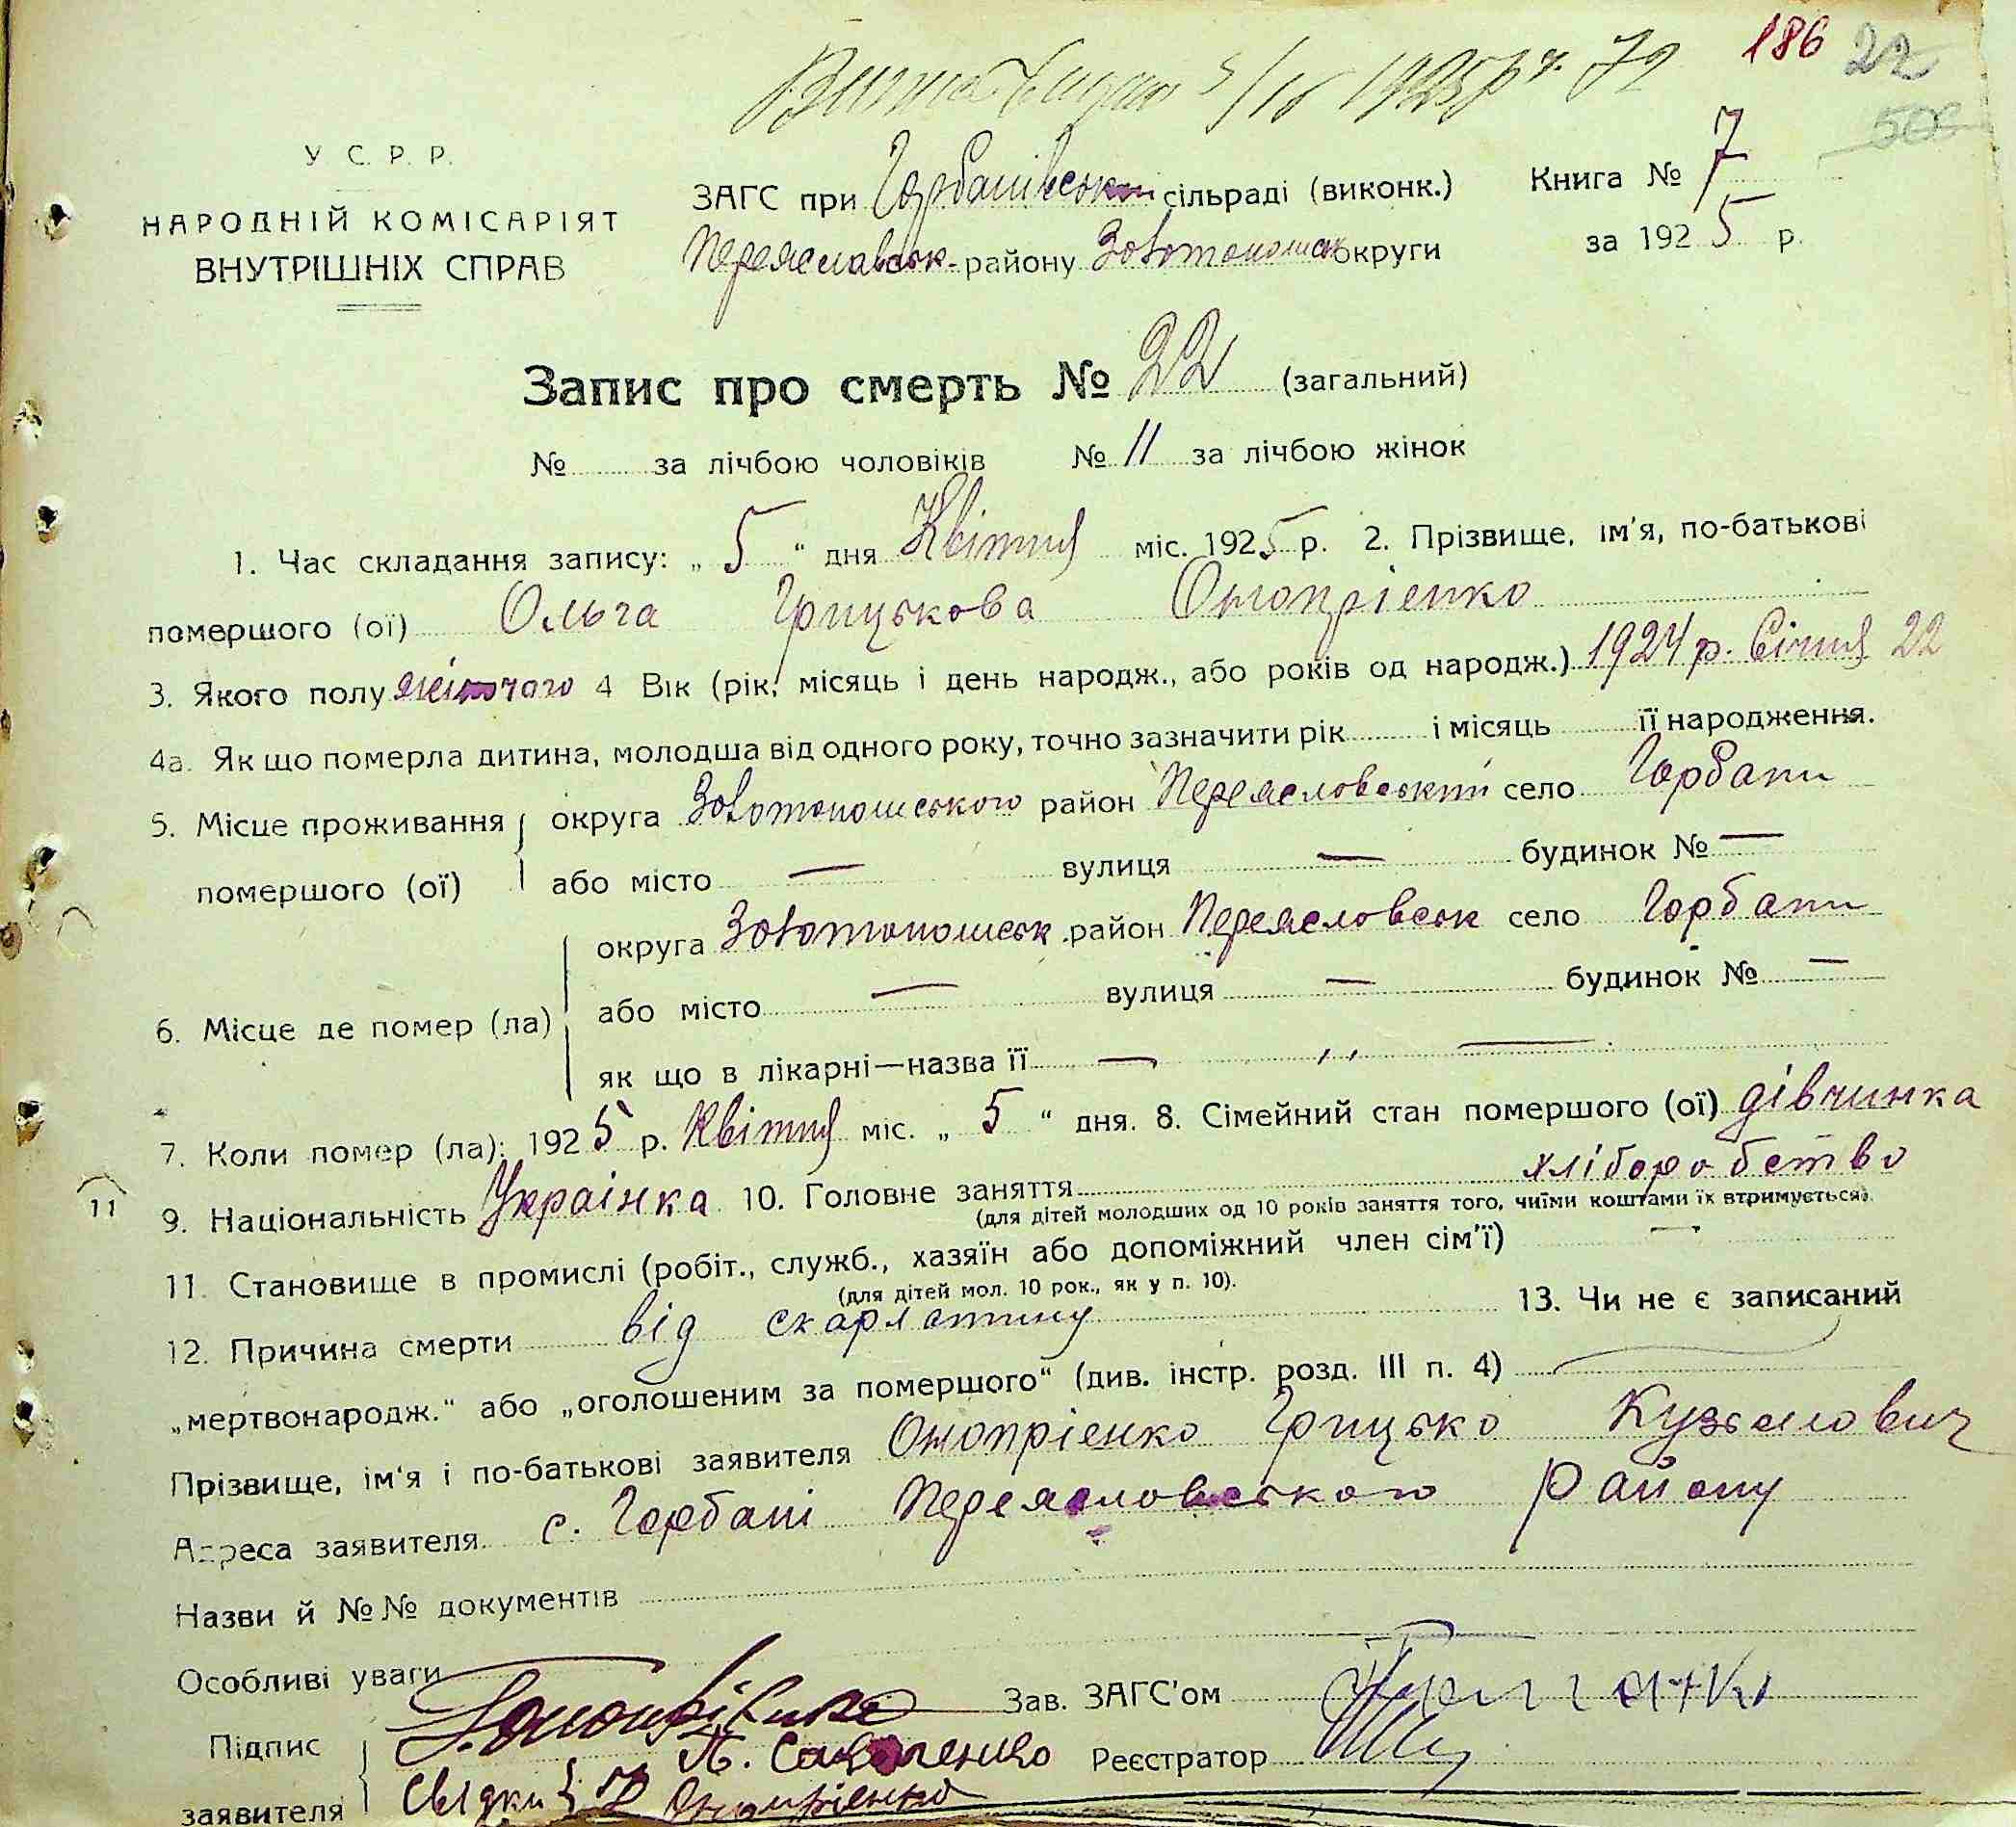 186 22
1925 р. 72
500
У С. Р. Р.
НАРОДНІЙ КОМІСАРІЯТ
ВНУТРІШНІХ СПРАВ
ЗАГС при Горбанівській сільраді (виконк.)
Переяславськ. району Золотоношськ округи
Книга № 7
за 1925 р.
Запис про смерть № 22 (загальний)
№ за лічбою чоловіків № 11 за лічбою жінок
1. Час складання запису: „ 5 “ дня Квітня міс. 1925 р. 2. Прізвище, ім'я, по-батькові
помершого (ої) Ольга Грицькова Онопрієнко
3. Якого полу жіночого 4 Вік (рік, місяць і день народж., або років од народж.) 1924 р. Січня 22
4а. Як що померла дитина, молодша від одного року, точно зазначити рік і місяць її народження.
5. Місце проживання округа Золотоношського район Переясловський село Горбани
помершого (ої) або місто — вулиця — будинок № —
округа Золотоношськ. район Переясловськ село Горбани
6. Місце де помер (ла) або місто — вулиця — будинок № —
як що в лікарні—назва її — „ —
7. Коли помер (ла): 1925 р. Квітня міс. „ 5 “ дня. 8. Сімейний стан помершого (ої) дівчинка
11
9. Національність Українка 10. Головне заняття хліборобство
(для дітей молодших од 10 років заняття того, чиїми коштами їх втримується).
11. Становище в промислі (робіт., служб., хазяїн або допоміжний член сім'ї) —
(для дітей мол. 10 рок., як у п. 10).
12. Причина смерти від скарлатину 13. Чи не є записаний
„мертвонародж.“ або „оголошеним за помершого“ (див. інстр. розд. III п. 4) —
Прізвище, ім'я і по-батькові заявителя Онопрієнко Грицько Кузьмович
Адреса заявителя с. Горбані Переясловського Району
Назви й №№ документів
Особливі уваги
Зав. ЗАГС'ом
Підпис Г. Онопрієнко
Реєстратор
заявителя Свідки Онопрієнко